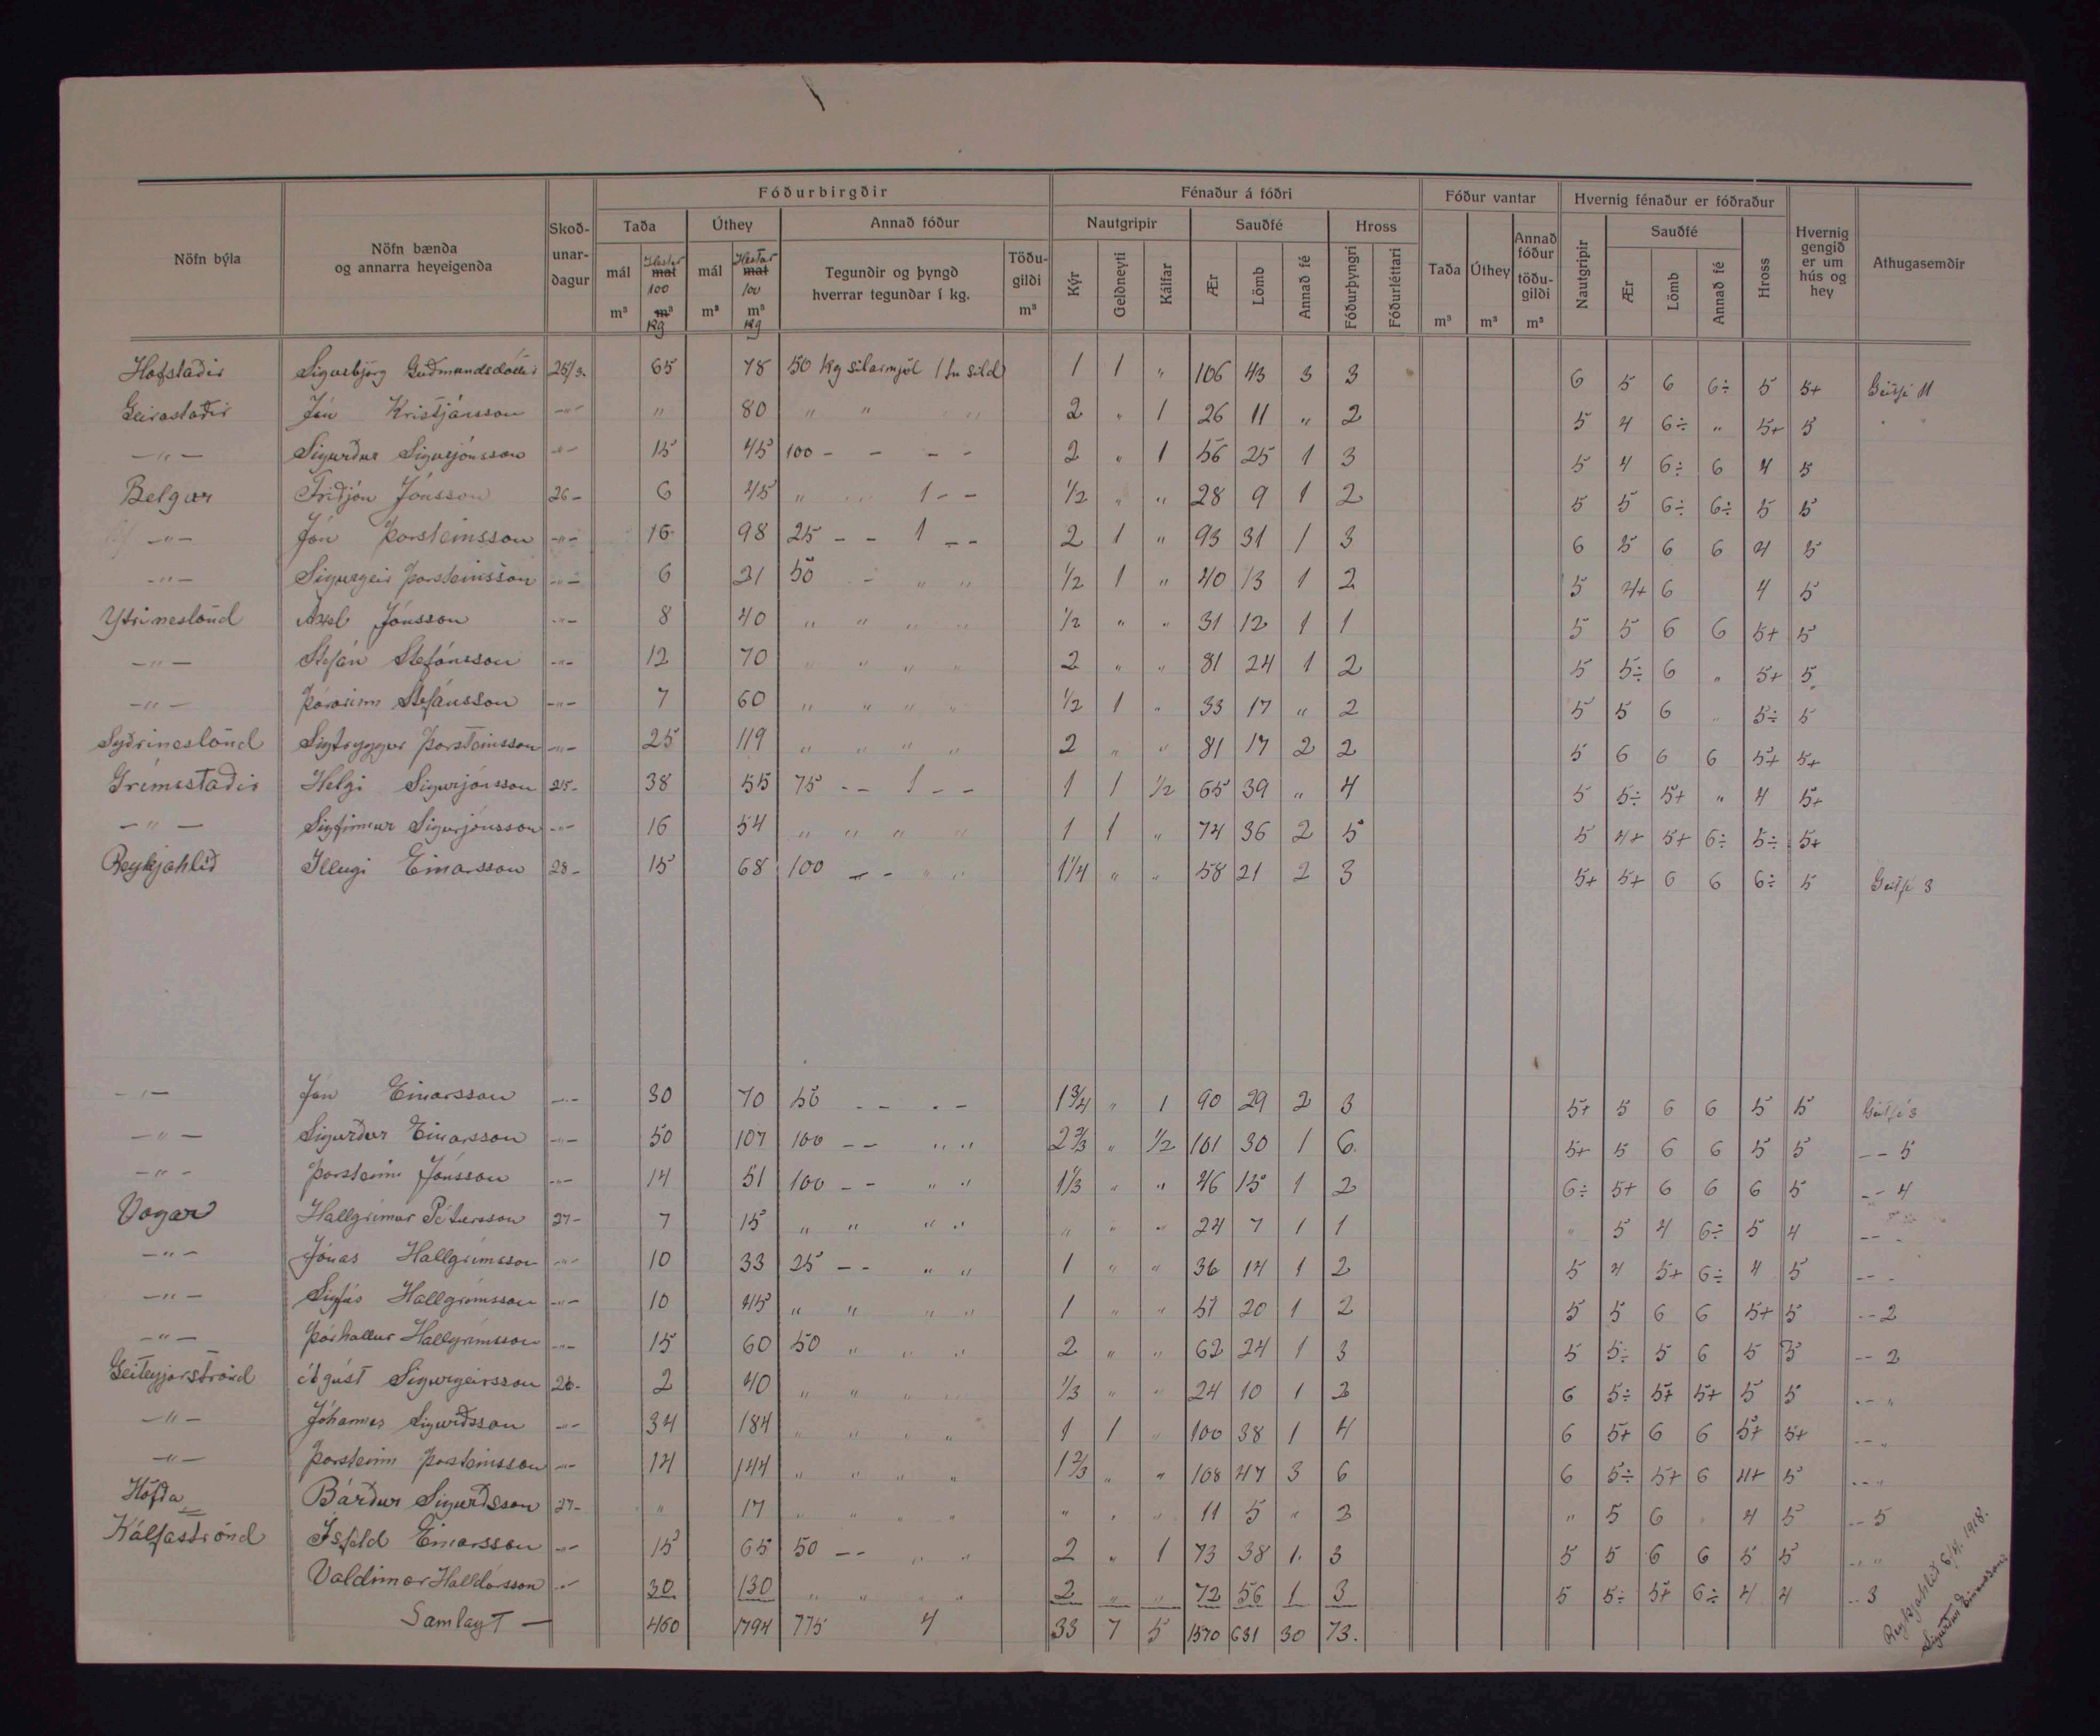 Fóðurbirgðir Fénaður á fóðri Fóður vantar Hvernig fénaður er fóðraður
Nöfn býla Nöfn bænda og annarra heyeigenda Skoð-unar-dagur Taða Úthey Annað fóður Nautgripir Sauðfé Hross Taða Úthey Annað fóður töðu-gildi Nautgripir Sauðfé Hross Hvernig gengið er um hús og hey Athugasemdir
mál Hestar mál 100 mál Hestar mál 100 Tegundir og þyngd hverrar tegundar í kg. Töðu-gildi Kýr Geldneyti Kálfar Ær Lömb Annað fé Fóðurþyngri Fóðurléttari Ær Lömb Annað fé
m³ m³ Kg m³ m³ Kg m³ m³ m³ m³
Hofstaðir Sigurbjörg Guðmundsdóttir 25/3. 65 78 50 kg síldarmjöl 1 tn síld 1 1 " 106 43 3 3 6 5 6 6÷ 5 5+ Geitfé 11
Geirastaðir Jón Kristjánsson -"- " 80 " " " 2 " 1 26 11 " 2 5 4 6÷ " 5+ 5
-"- Sigurður Sigurjónsson -"- 15 45 100 - - - - 2 " 1 56 25 1 3 5 4 6÷ 6 4 5
Belgur Friðjón Jónsson 26- 6 45 " " 1 - - 1/2 " " 28 9 1 2 5 5 6÷ 6÷ 5 5
-"- Jón Þorsteinsson -"- 16 98 25 - - 1 - - 2 1 " 93 31 1 3 6 5 6 6 4 5
-"- Sigurgeir Þorsteinsson -"- 6 21 50 - " " 1/2 1 " 40 13 1 2 5 4+ 6 4 5
Ytrineslönd Axel Jónsson -"- 8 40 " " " " 1/2 " " 31 12 1 1 5 5 6 6 5+ 5
-"- Stefán Stefánsson -"- 12 70 " " " " 2 " " 81 24 1 2 5 5÷ 6 " 5+ 5
-"- Þórarinn Stefánsson -"- 7 60 " " " " 1/2 1 " 33 17 " 2 5 5 6 " 5÷ 5
Syðrineslönd Sigtryggur Þorsteinsson -"- 25 119 " " " " 2 " " 81 17 2 2 5 6 6 6 5+ 5+
Grímsstaðir Helgi Sigurjónsson 25- 38 55 75 - - 1 - - 1 1 1/2 65 39 " 4 5 5÷ 5+ " 4 5+
-"- Sigfinnur Sigurjónsson -"- 16 54 " " " " 1 1 " 74 36 2 5 5 4+ 5+ 6÷ 5÷ 5+
Reykjahlíð Illugi Einarsson 28- 15 68 100 - - " " 1 1/4 " " 58 21 2 3 5+ 5+ 6 6 6÷ 5 Geitfé 3
-"- Jón Einarsson -"- 30 70 50 - - - - 1 3/4 " 1 90 29 2 3 5+ 5 6 6 5 5 Geitfé 3
-"- Sigurður Einarsson -"- 50 107 100 - - " " 2 2/3 " 1/2 101 30 1 6 5+ 5 6 6 5 5 - - 5
-"- Þorsteinn Jónsson -"- 14 51 100 - - " " 1 1/3 " " 46 15 1 2 6÷ 5+ 6 6 6 5 - - 4
Vogar Hallgrímur Pétursson 27- 7 15 " " " " " " " 24 7 1 1 " 5 4 6÷ 5 4 - - -
-"- Jónas Hallgrímsson -"- 10 33 25 - - " " 1 " " 36 14 1 2 5 4 5+ 6÷ 4 5 - - -
-"- Sigfús Hallgrímsson -"- 10 45 " " " " 1 " " 51 20 1 2 5 5 6 6 5+ 5 - - 2
-"- Þórhallur Hallgrímsson -"- 15 60 50 " " " 2 " " 62 24 1 3 5 5÷ 5 6 5 5 - - 2
Geiteyjarströnd Ágúst Sigurgeirsson 26- 2 40 " " " " 1/3 " " 24 10 1 2 6 5÷ 5+ 5+ 5 5 - - "
-"- Jóhannes Sigurðsson -"- 34 184 " " " " 1 1 " 100 38 1 4 6 5+ 6 6 5+ 5+ - - "
-"- Þorsteinn Þorsteinsson -"- 14 144 " " " " 1 2/3 " " 108 47 3 6 6 5÷ 5+ 6 4+ 5 - - "
Höfða Bárður Sigurðsson 27- " 17 " " " " " " " 11 5 " 2 " 5 6 " 4 5 - - 5
Kálfaströnd Ísfeld Einarsson -"- 15 65 50 - - " " 2 " 1 73 38 1 3 5 5 6 6 5 5 - - "
Valdimar Halldórsson -"- 30 130 " " " " 2 " " 72 56 1 3 5 5÷ 5+ 6÷ 4 4 - - 3
Samlagt - 460 1794 775 4 33 7 5 1570 631 30 73.
Reykjahlíð 8/4. 1918.
Sigurður Einarsson